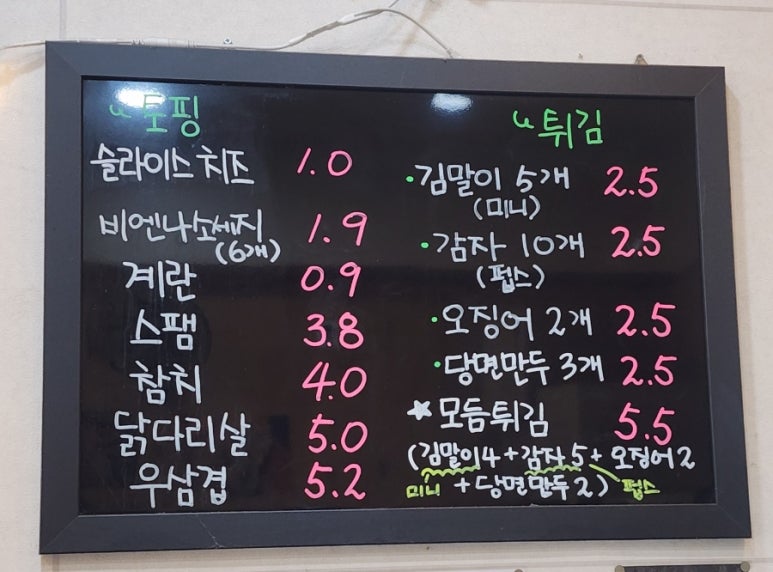 토핑
슬라이스 치즈 1.0
비엔나소세지 1.9
(6개)
계란 0.9
스팸 3.8
참치 4.0
닭다리살 5.0
우삼겹 5.2
튀김
·김말이 5개 2.5
(미니)
·감자 10개 2.5
(펍스)
·오징어 2개 2.5
·당면만두 3개 2.5
★모듬튀김 5.5
(김말이4+감자5+오징어2
미니 +당면만두2) 펍스